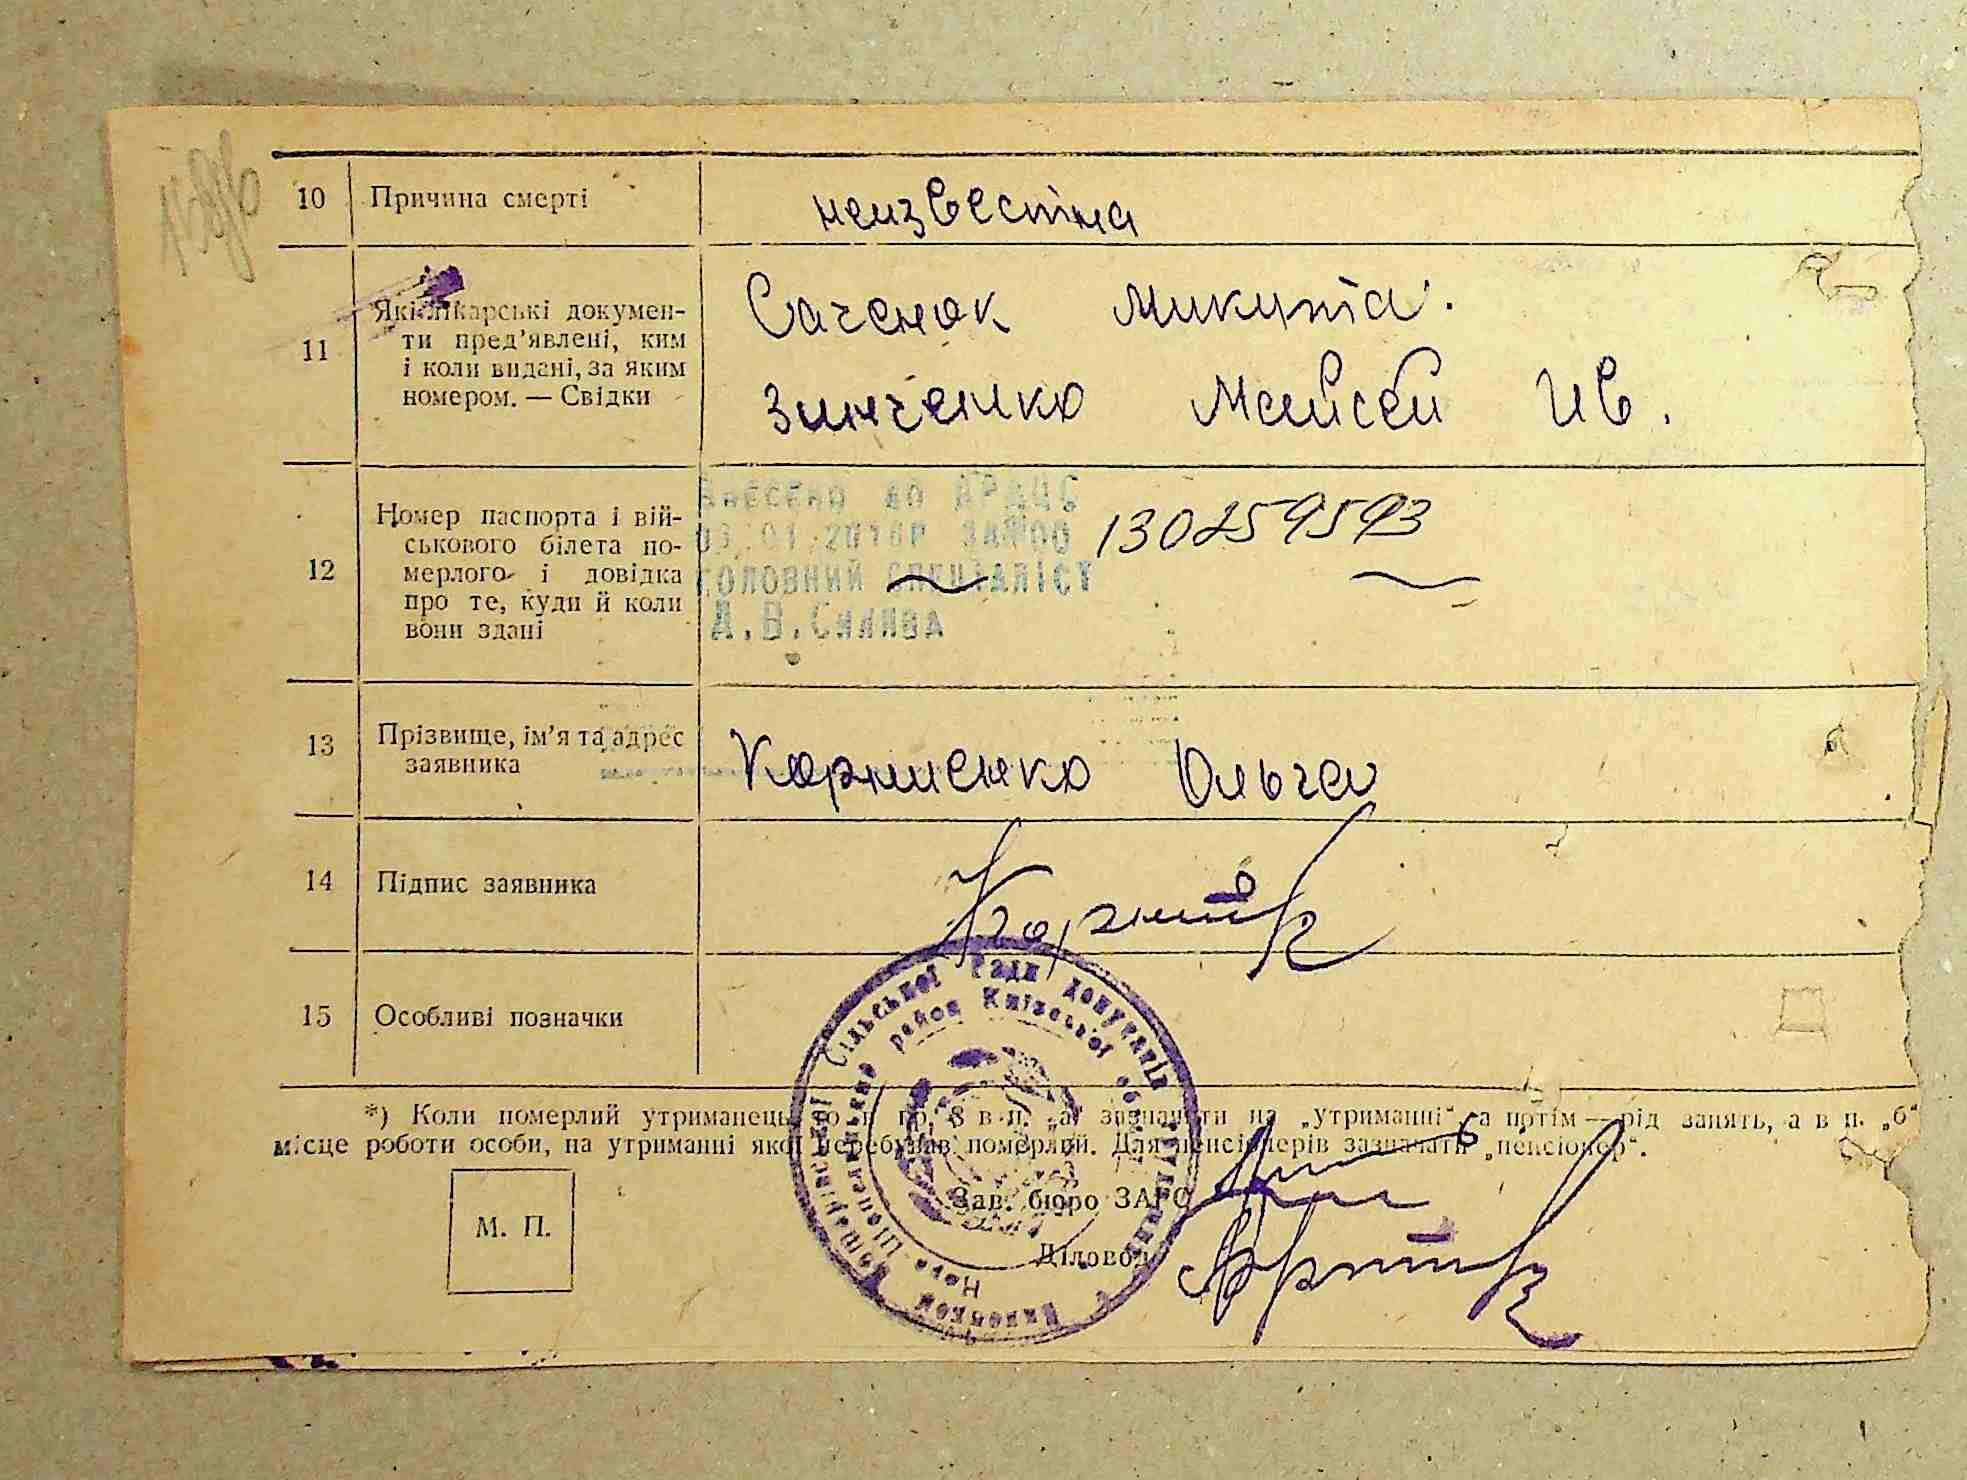 10 Причина смерті неизвестна
11 Які лікарські докумен-
ти пред'явлені, ким
і коли видані, за яким
номером. — Свідки
Саченок Микита.
Зинченко Мойсей Ив.
12 Номер паспорта і вій-
ськового білета по-
мерлого і довідка
про те, куди й коли
вони здані
Внесено до ДРАЦС
ГОЛОВНИЙ СПЕЦІАЛІСТ
130259593
13 Прізвище, ім'я та адрес
заявника
Корниенко Ольга
14 Підпис заявника
15 Особливі позначки
*) Коли померлий утриманець, то в пр. 8 в п. „а" зазначати на „утриманні", а потім — рід занять, а в п. „б"
місце роботи особи, на утриманні якої перебував померлий. Для пенсіонерів зазначати „пенсіонер".
М. П.
Зав. бюро ЗАГС
Діловод
Сільської Ради депутатів
район Київської